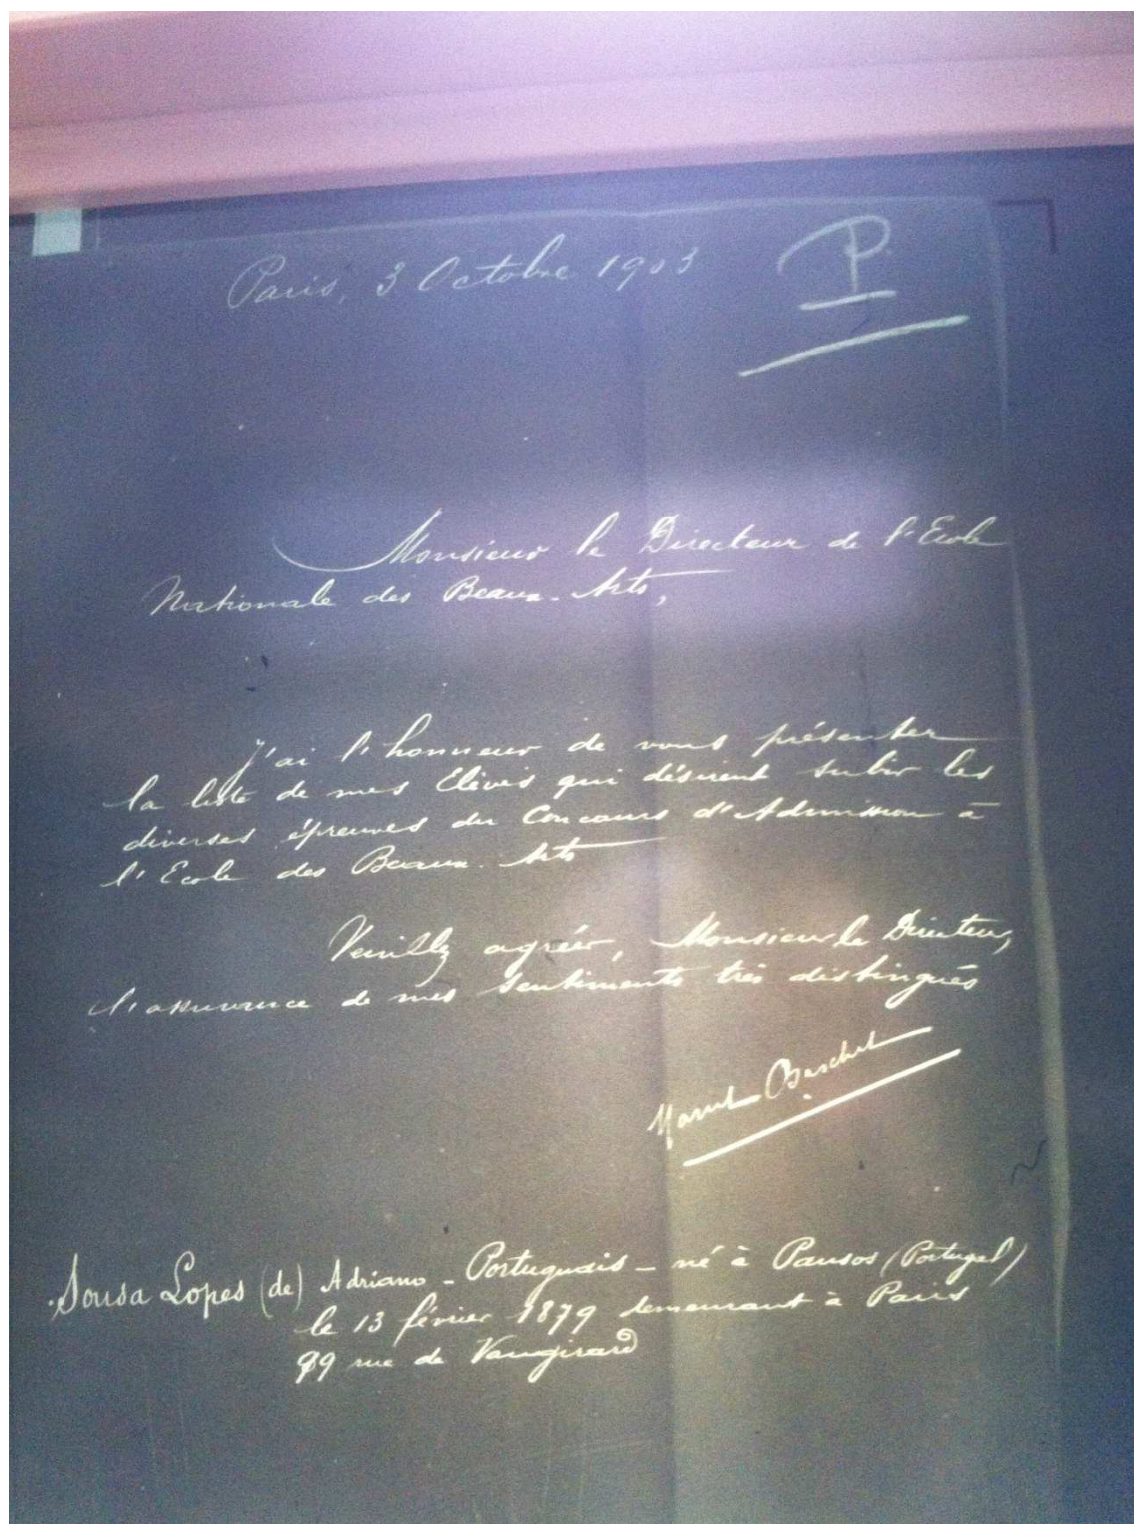 Paris, 3 Octobre 1903
P.
Monsieur le Directeur de l'Ecole
Nationale des Beaux-Arts,
J'ai l'honneur de vous présenter
la liste de mes Elèves qui désirent subir les
diverses épreuves du Concours d'Admission à
l'Ecole des Beaux-Arts
Veuillez agréer, Monsieur le Directeur,
l'assurance de mes sentiments très distingués
Marcel Baschet
Sousa Lopes (de) Adriano - Portuguais - né à Pousos (Portugal)
le 13 février 1879 demeurant à Paris
rue de Vaugirard